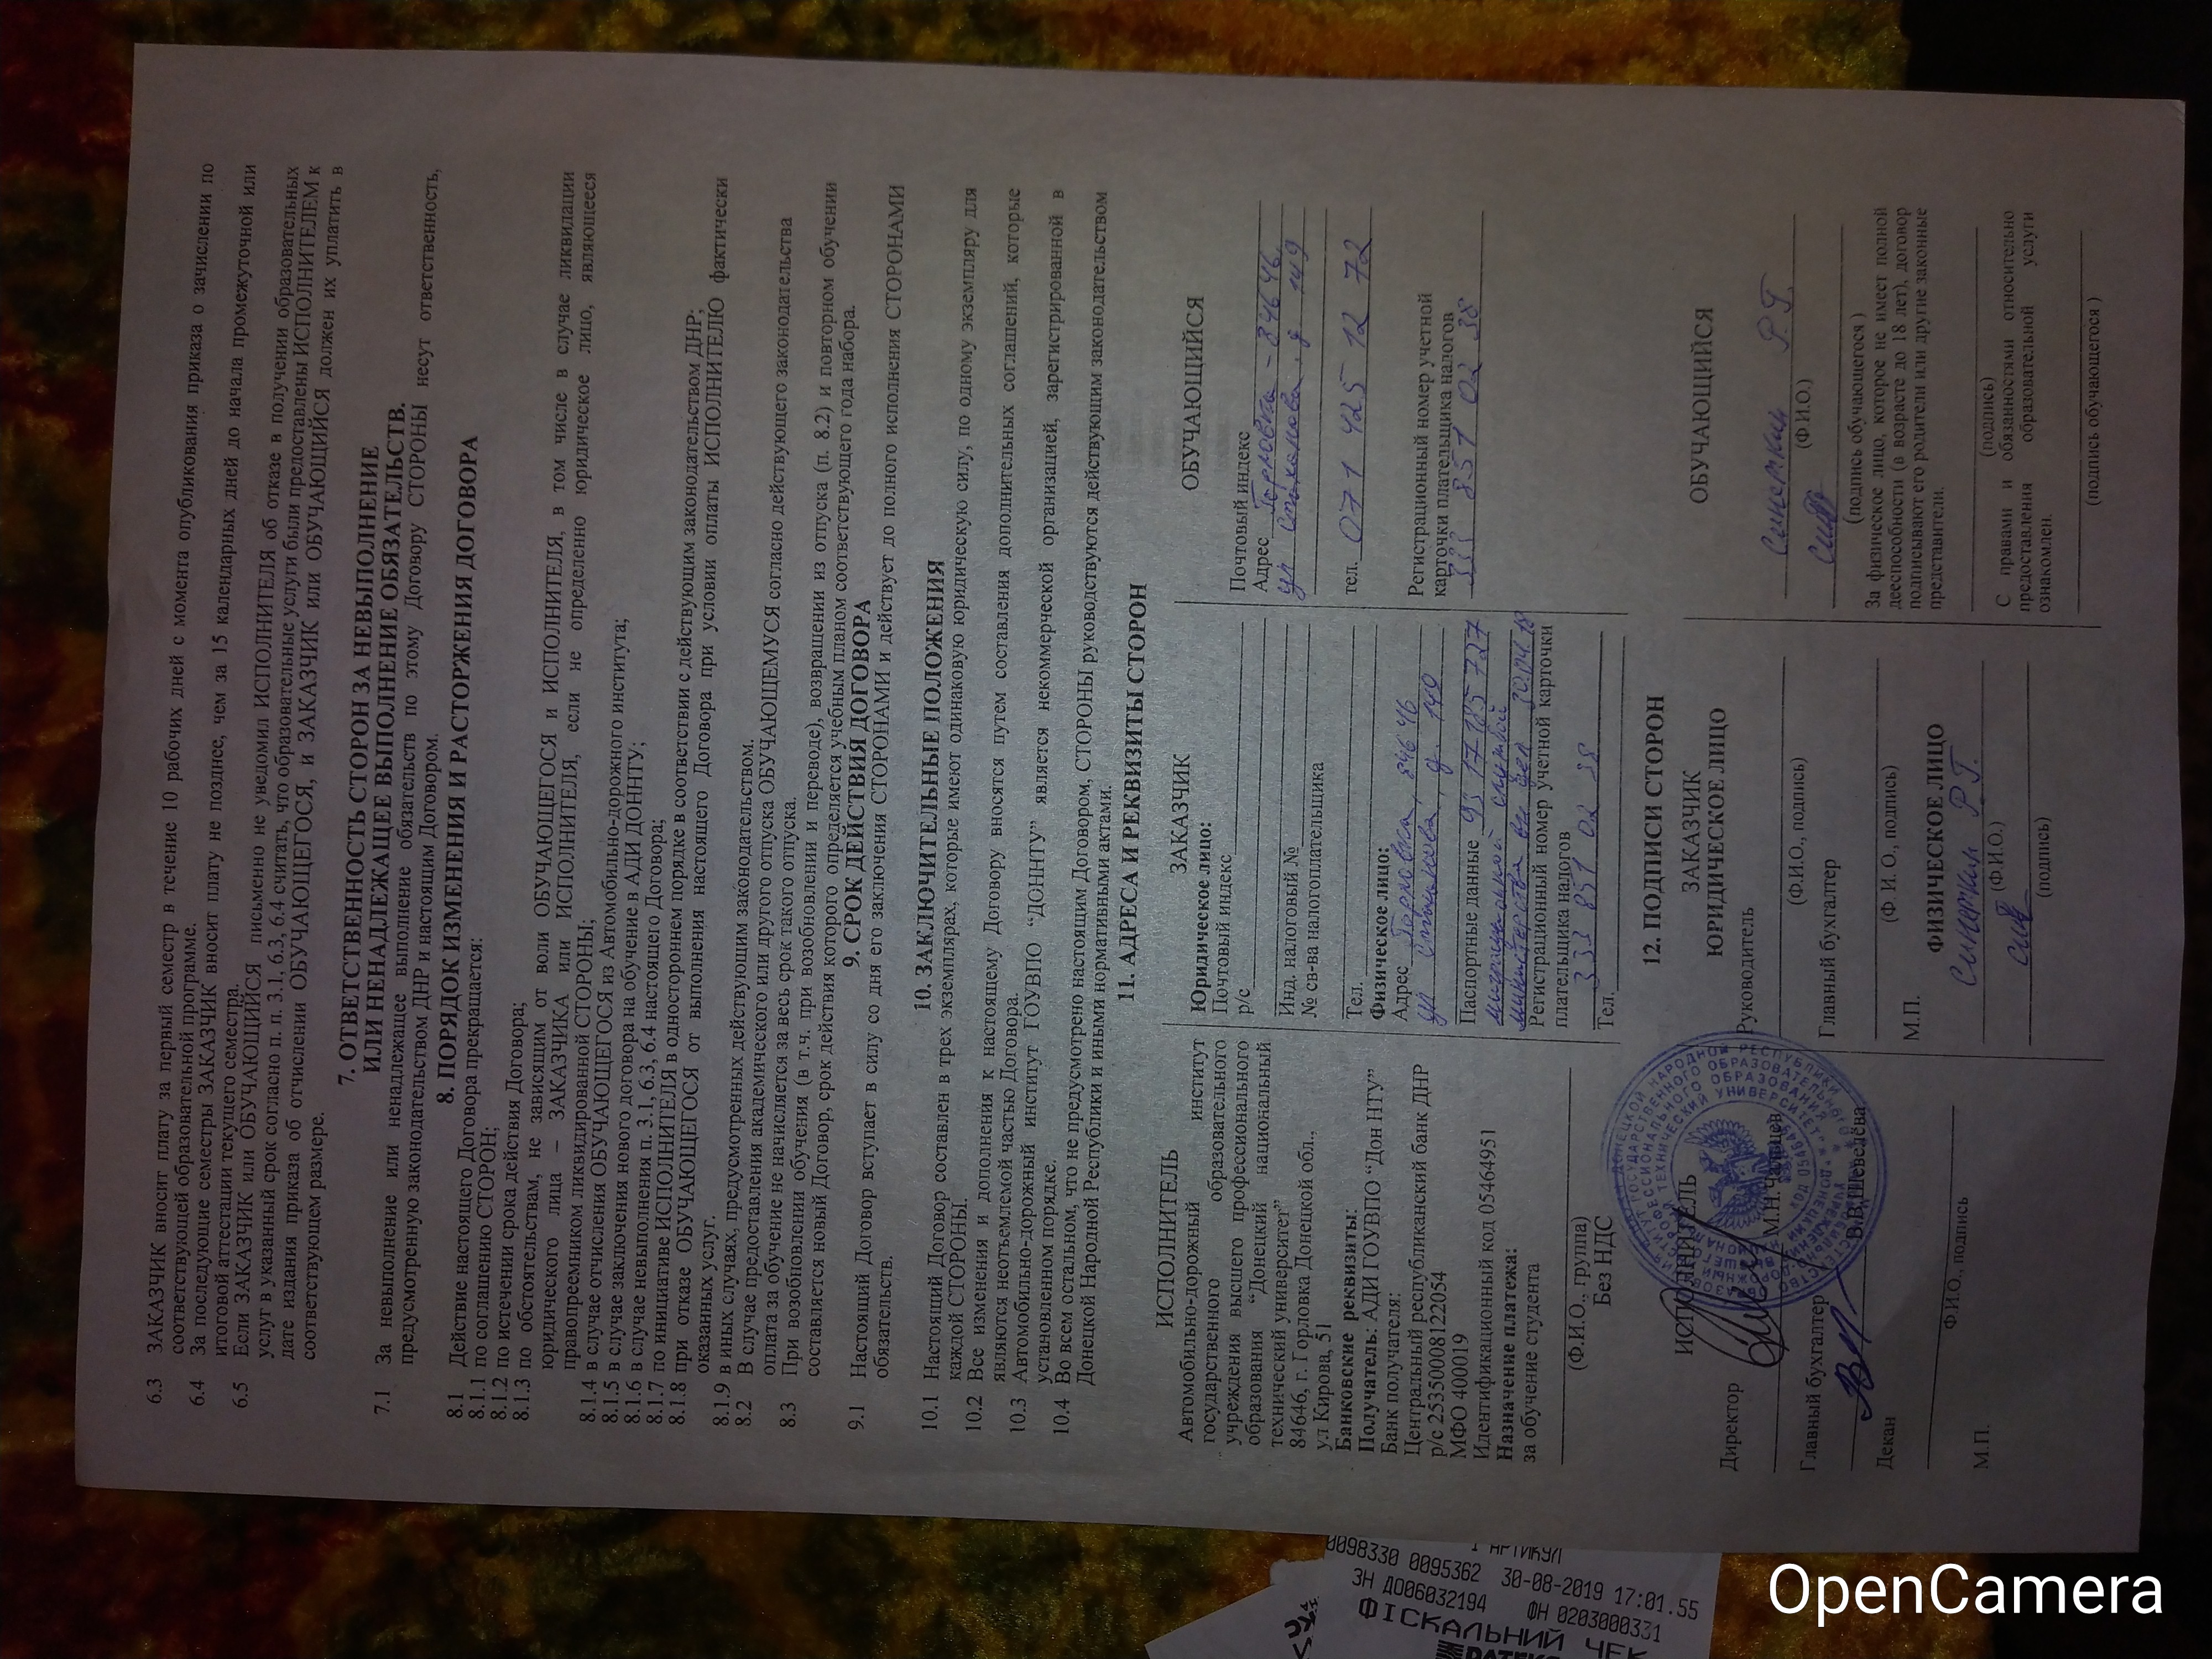 6.3 ЗАКАЗЧИК вносит плату за первый семестр в течение 10 рабочих дней с момента опубликования приказа о зачислении по
соответствующей образовательной программе.
6.4 За последующие семестры ЗАКАЗЧИК вносит плату не позднее, чем за 15 календарных дней до начала промежуточной или
итоговой аттестации текущего семестра.
6.5 Если ЗАКАЗЧИК или ОБУЧАЮЩИЙСЯ письменно не уведомил ИСПОЛНИТЕЛЯ об отказе в получении образовательных
услуг в указанный срок согласно п. п. 3.1, 6.3, 6.4 считать, что образовательные услуги были предоставлены ИСПОЛНИТЕЛЕМ к
дате издания приказа об отчислении ОБУЧАЮЩЕГОСЯ, и ЗАКАЗЧИК или ОБУЧАЮЩИЙСЯ должен их уплатить в
соответствующем размере.
7. ОТВЕТСТВЕННОСТЬ СТОРОН ЗА НЕВЫПОЛНЕНИЕ
ИЛИ НЕНАДЛЕЖАЩЕЕ ВЫПОЛНЕНИЕ ОБЯЗАТЕЛЬСТВ.
7.1 За невыполнение или ненадлежащее выполнение обязательств по этому Договору СТОРОНЫ несут ответственность,
предусмотренную законодательством ДНР и настоящим Договором.
8. ПОРЯДОК ИЗМЕНЕНИЯ И РАСТОРЖЕНИЯ ДОГОВОРА
8.1 Действие настоящего Договора прекращается:
8.1.1 по соглашению СТОРОН;
8.1.2 по истечении срока действия Договора;
8.1.3 по обстоятельствам, не зависящим от воли ОБУЧАЮЩЕГОСЯ и ИСПОЛНИТЕЛЯ, в том числе в случае ликвидации
юридического лица – ЗАКАЗЧИКА или ИСПОЛНИТЕЛЯ, если не определенно юридическое лицо, являющееся
правопреемником ликвидированной СТОРОНЫ;
8.1.4 в случае отчисления ОБУЧАЮЩЕГОСЯ из Автомобильно-дорожного института;
8.1.5 в случае заключения нового договора на обучение в АДИ ДОННТУ;
8.1.6 в случае невыполнения п. 3.1, 6.3, 6.4 настоящего Договора;
8.1.7 по инициативе ИСПОЛНИТЕЛЯ в одностороннем порядке в соответствии с действующим законодательством ДНР;
8.1.8 при отказе ОБУЧАЮЩЕГОСЯ от выполнения настоящего Договора при условии оплаты ИСПОЛНИТЕЛЮ фактически
оказанных услуг.
8.1.9 в иных случаях, предусмотренных действующим законодательством.
8.2 В случае предоставления академического или другого отпуска ОБУЧАЮЩЕМУСЯ согласно действующего законодательства
оплата за обучение не начисляется за весь срок такого отпуска.
8.3 При возобновлении обучения (в т.ч. при возобновлении и переводе), возвращении из отпуска (п. 8.2) и повторном обучении
составляется новый Договор, срок действия которого определяется учебным планом соответствующего года набора.
9. СРОК ДЕЙСТВИЯ ДОГОВОРА
9.1 Настоящий Договор вступает в силу со дня его заключения СТОРОНАМИ и действует до полного исполнения СТОРОНАМИ
обязательств.
10. ЗАКЛЮЧИТЕЛЬНЫЕ ПОЛОЖЕНИЯ
10.1 Настоящий Договор составлен в трех экземплярах, которые имеют одинаковую юридическую силу, по одному экземпляру для
каждой СТОРОНЫ.
10.2 Все изменения и дополнения к настоящему Договору вносятся путем составления дополнительных соглашений, которые
являются неотъемлемой частью Договора.
10.3 Автомобильно-дорожный институт ГОУВПО “ДОННТУ” является некоммерческой организацией, зарегистрированной в
установленном порядке.
10.4 Во всем остальном, что не предусмотрено настоящим Договором, СТОРОНЫ руководствуются действующим законодательством
Донецкой Народной Республики и иными нормативными актами.
11. АДРЕСА И РЕКВИЗИТЫ СТОРОН
ИСПОЛНИТЕЛЬ
Автомобильно-дорожный институт
государственного образовательного
учреждения высшего профессионального
образования “Донецкий национальный
технический университет”
84646, г. Горловка Донецкой обл.,
ул Кирова, 51
Банковские реквизиты:
Получатель: АДИ ГОУВПО “Дон НТУ”
Банк получателя:
Центральный республиканский банк ДНР
р/с 25350008122054
МФО 400019
Идентификационный код 05464951
Назначение платежа:
за обучение студента
(Ф.И.О., группа)
Без НДС
ЗАКАЗЧИК
Юридическое лицо:
Почтовый индекс
р/с
Инд. налоговый №
№ св-ва налогоплательщика
Тел.
Физическое лицо:
Адрес Горловка, 84646
ул Стаханова, д. 149
Паспортные данные 93 17 185 727
миграционной службой
министерства вн дел 30.04.18
Регистрационный номер учетной карточки
плательщика налогов
333 851 02 38
Тел.
ОБУЧАЮЩИЙСЯ
Почтовый индекс
Адрес Горловка - 84646
ул Стаханова, д 149
тел. 071 425 12 72
Регистрационный номер учетной
карточки плательщика налогов
333 851 02 38
12. ПОДПИСИ СТОРОН
ИСПОЛНИТЕЛЬ
Директор М.Н.Чальцев
Главный бухгалтер
О.В.Шевелёва
Декан
Ф.И.О., подпись
М.П.
ЗАКАЗЧИК
ЮРИДИЧЕСКОЕ ЛИЦО
Руководитель
(Ф.И.О., подпись)
Главный бухгалтер
(Ф. И.О., подпись)
М.П.
ФИЗИЧЕСКОЕ ЛИЦО
Р.Г.
(Ф.И.О.)
(подпись)
ОБУЧАЮЩИЙСЯ
Р.Г.
(Ф.И.О.)
(подпись обучающегося )
За физическое лицо, которое не имеет полной
дееспособности (в возрасте до 18 лет), договор
подписывают его родители или другие законные
представители.
(подпись)
С правами и обязанностями относительно
предоставления образовательной услуги
ознакомлен.
(подпись обучающегося )
1 АРТИКУЛ
0098330 0095362 30-08-2019 17:01.55
ЗН ДО06032194 ФН 0203000331
ФІСКАЛЬНИЙ ЧЕК
OpenCamera